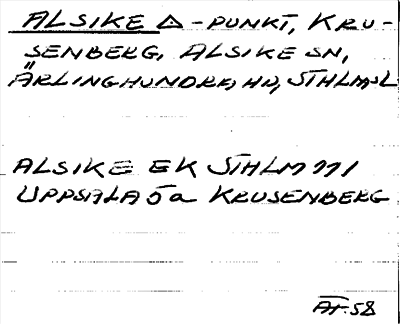 ALSIKE △-PUNKT, KRU-
SENBERG, ALSIKE SN,
ÄRLINGHUNDRA HD, STHLMSL
ALSIKE EK STHLM 111
UPPSALA 5a KRUSENBERG
ÅT. 58